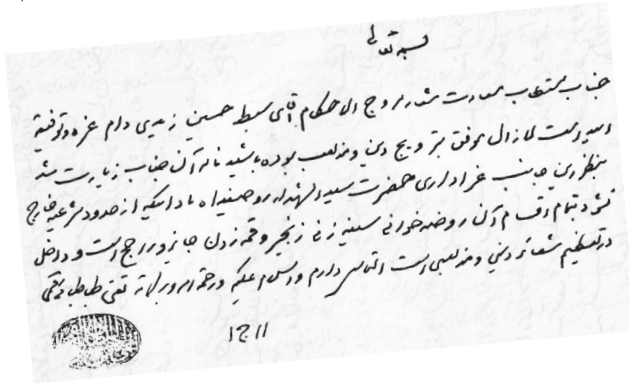 بسمه تعالی
جناب مستطاب سعادت مدار مروج الاحکام آقای سبط حسین زیدی دام عزه و توفیقه
امید است لازال موفق بترویج دین و مذهب بوده باشید نامه آن جناب زیارت شد
بنظر این جانب عزاداری حضرت سید الشهداء روحی فداه مادامیکه از حدود شرعیه خارج
نشود تمام اقسام آن روضه خوانی سینه زنی زنجیر و قمه زدن جائز و راجح است و داخل
در تعظیم شعائر دینی و مذهبی است التماس دعا دارم والسلام علیکم و رحمة الله وبرکاته تقی طباطبائی قمی
۱۱ ج ۱